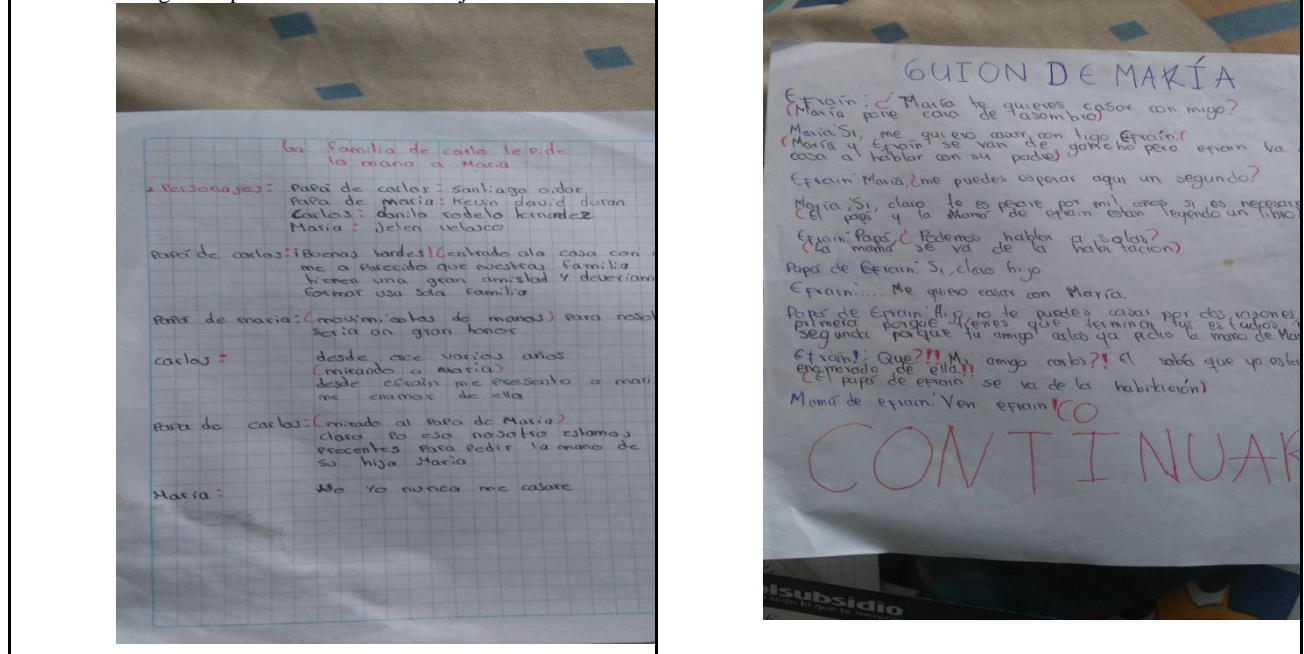 La familia de carlo le pide
la mano a Maria
Personajes: Papá de carlos: Santiago oidor
Papa de maria: Kevin david duran
Carlos: danilo rodelo hernardez
Maria: Jelen velasco
Papá de carlos: ¡Buenas tardes! (entrado ala casa con
me a parecido que nuestras familia
tienen una gran amistad y deveriam
formar usa sola familia
Papá de maria: (movim de manos) para noso
seria on gran honor
carlos: desde ace varios años
(mirando a Maria)
desde efrain me presento a mari
me enamore de ella
Papa de carlos: (mirado al papa de Maria)
claro po eso nosotro estamos
precentes para pedir la mano de
su hija Maria
Maria: No Yo nunca me casare
GUION DE MARÍA
Efrain: ¿María te quieres casar con migo?
(María pone cara de asombro)
María: Si, me quiero casar con tigo Efraín.(
(María y Efraín se van de gancho pero efrain va
casa a hablar con su padre)
Efrain: María, ¿me puedes esperar aqui un segundo?
María: Si, claro te es perare por mil años si es necesar
(El papá y la Mamá de efrain estan leyendo un libro
Efrain: Papá, ¿Podemos hablar a solas?
(La mamá se va de la habi tación)
Papá de Efrain: Si, claro hijo
Efrain:.... Me quiero casar con María.
Papá de Efrain: Hijo no te puedes casar por dos razones,
primera porque tienes que terminar tus es tudios
segunda porque tu amigo carlos ya pidio la mano de Mar
Efrain: Que?!!! Mi amigo carlos?! el sabía que yo esta
enamorado de ella!!
(El papá de efrain se va de la habitación)
Mamá de efrain: Ven efrain CO
CONTINUAR
olsubsidio